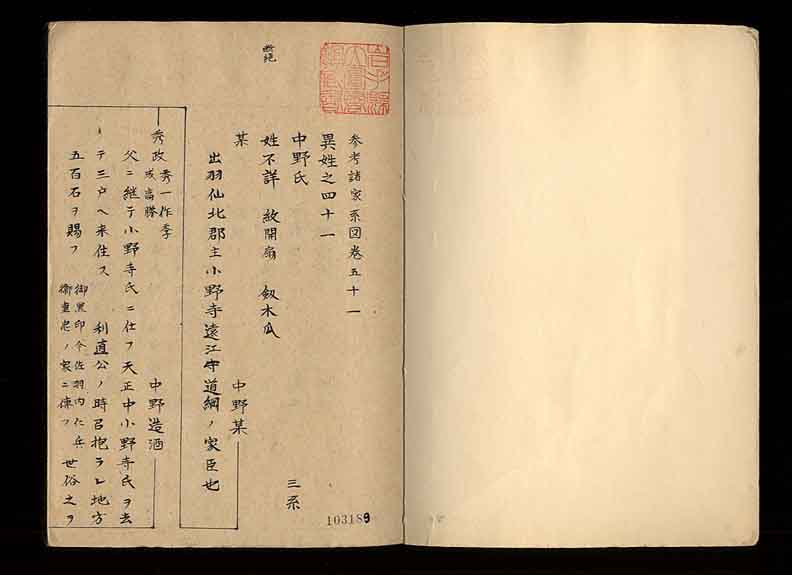 断絶
参考諸家系図巻五十一
異姓之四十一
中野氏 三系
姓不詳 紋開扇 釼木瓜
某 中野某
出羽仙北郡主小野寺遠江守道綱ノ家臣也
秀政 秀一作季 或高勝 中野造酒
父ニ継テ小野寺氏ニ仕フ天正中小野寺氏ヲ去
リテ三戸ヘ来住ス 利直公ノ時召抱ラレ地方
五百石ヲ賜フ 御黒印今佐羽内仁兵衛重忠ノ家ニ傳フ 世俗之ヲ
103189